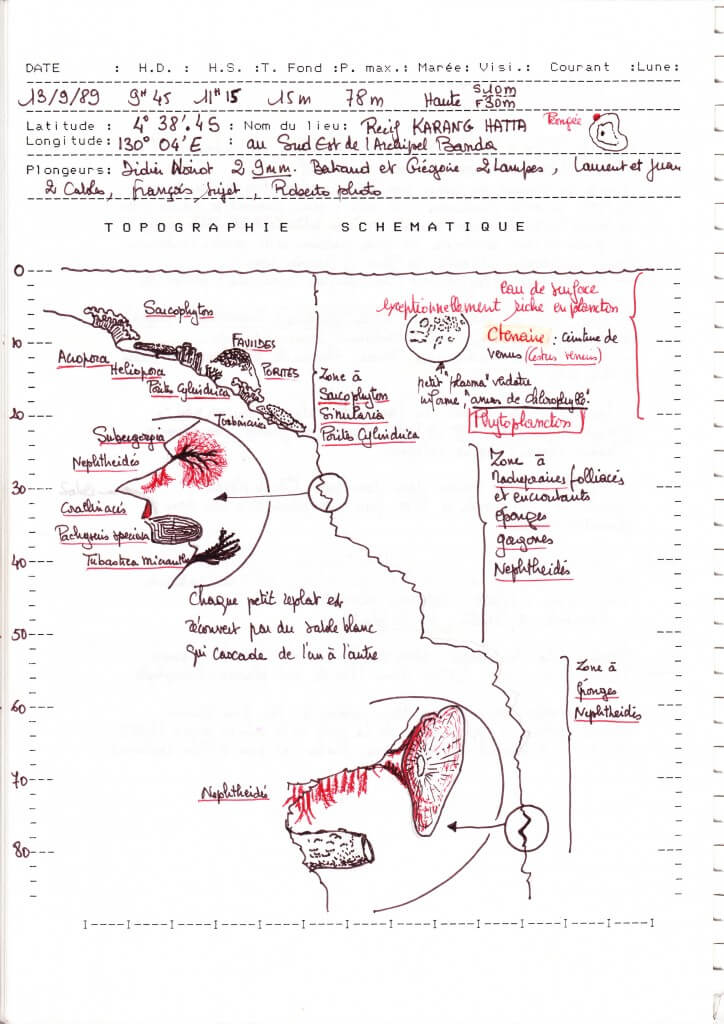 DATE : H.D. : H.S. :T. Fond :P. max.: Marée: Visi.: Courant :Lune:
13/9/89 9H 45 11H 15 15m 78m Haute S 40m
F 30m
Latitude : 4° 38'.45 : Nom du lieu: Récif KARANG HATTA Plongée
Longitude: 130° 04'E : au Sud Est de l'Archipel Banda
Plongeurs: Didier Noirot 2 9mm. Bertrand et Grégoire 2 Lampes, Laurent et Juan
2 Cables, François sujet, Roberto photo
TOPOGRAPHIE SCHEMATIQUE
0
10
20
30
40
50
60
70
80
Eau de surface
exceptionnellement riche en plancton
Sarcophyton
Cténaire : ceinture de
venus (Cestus veneris)
FAVIIDES
Acropora
Heliopora
PORITES
Porites Cylindrica
Turbinaria
Zone à
Sarcophyton
Sinularia
Porites Cylindrica
petit "plasma" verdatre
informe, "amas de chlorophylle"!
Phytoplancton
Subergorgia
Nephtheidés
Corallinacés
Pachyseris speciosa
Tubastrea micrantha
Zone à
Madréporaires folliacés
et encroutants
éponges
gorgones
Nephtheidés
Chaque petit replat est
recouvert par du sable blanc
qui cascade de l'un à l'autre
Zone à
Eponges
Nephtheidés
Nephtheidés